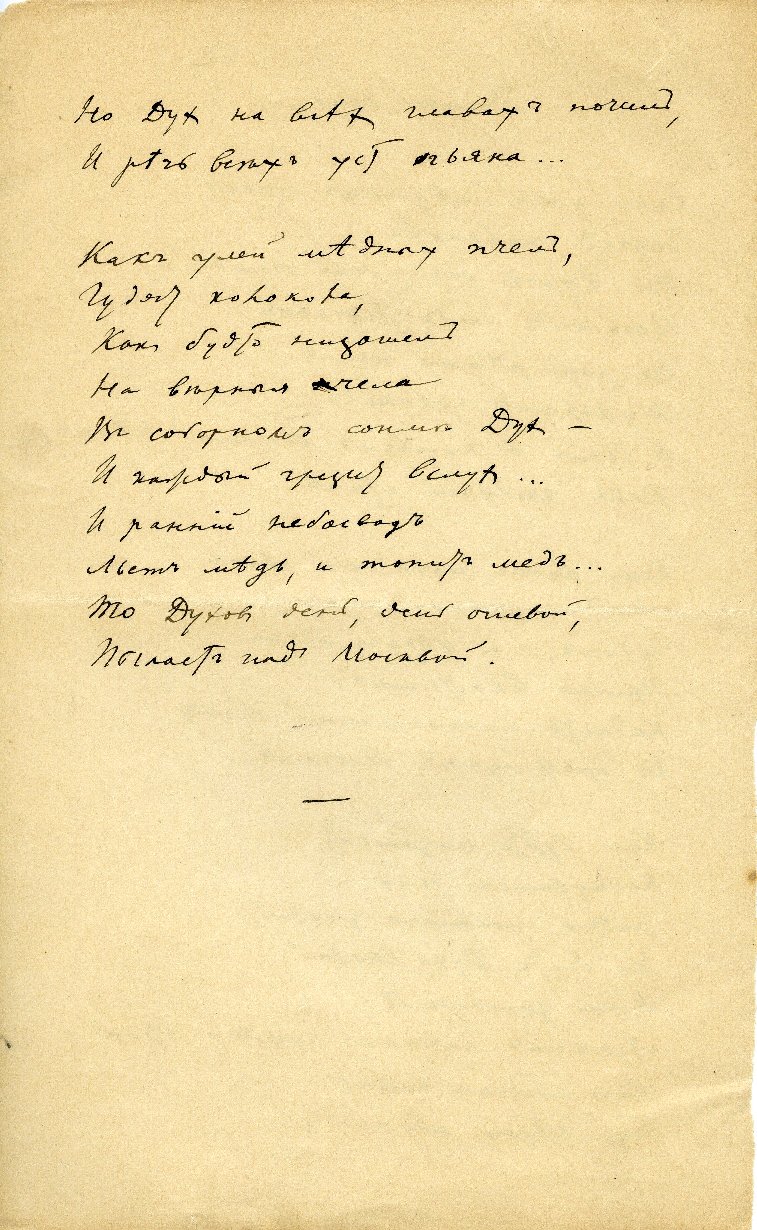 Но Духъ на всѣхъ главахъ почилъ,
И рѣчь всѣхъ устъ пьяна...
Какъ улей мѣдныхъ пчелъ,
Гудятъ колокола,
Какъ будто низошелъ
На вѣрныя чела
Въ соборномъ сонмѣ Духъ —
И каждый грезитъ вслухъ...
И ранній небосводъ
Льетъ мѣдь, и топитъ медъ...
То Духовъ день, день огневой,
Пылаетъ надъ Москвой.